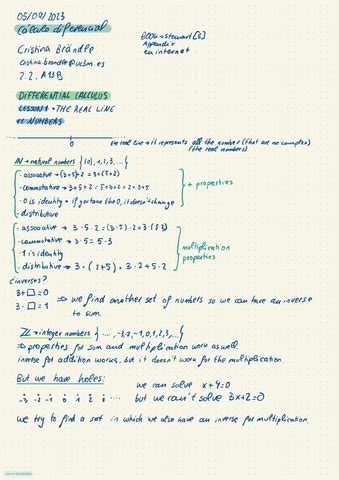 05/09/2023
Cálculo diferencial
Cristina Brändle
cristina.brandle@uc3m.es
2.2. A13B
BOOK → Stewart [S]
Appendix
en internet
DIFFERENTIAL CALCULUS
LESSON 1 → THE REAL LINE
NUMBERS
0
the real line → it represents all the number (that are no complex)
(the real numbers)
ℕ → natural numbers {(0), 1, 2, 3, ...}
· associative → (3+5)+2 = 3+(5+2)
· commutative → 3+5+2 = 5+3+2 = 2+3+5
· 0 is identity → if you take the 0, it doesn't change
· distributive
+ properties
· associative → 3·5·2 = (3·5)·2 = 3·(5·2)
· commutative → 3·5 = 5·3
· 1 is identity
· distributive → 3·(2+5) = 3·2+5·2
multiplication
properties
¿inverses?
3+□ = 0
3·□ = 1
⇒ we find another set of numbers so we can have an inverse
to sum.
ℤ → integer numbers {..., -3, -2, -1, 0, 1, 2, 3, ...}
⇒ properties for sum and multiplication work as well
inverse for addition works, but it doesn't work for the multiplication.
But we have holes:
-3 -2 -1 0 1 2 3 ....
we can solve x+4=0
but we can't solve 3x+2=0
we try to find a set in which we also have an inverse for multiplication.